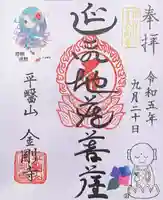 奉拝
令和五年
九月二十日
延命地蔵菩薩
山
金剛寺